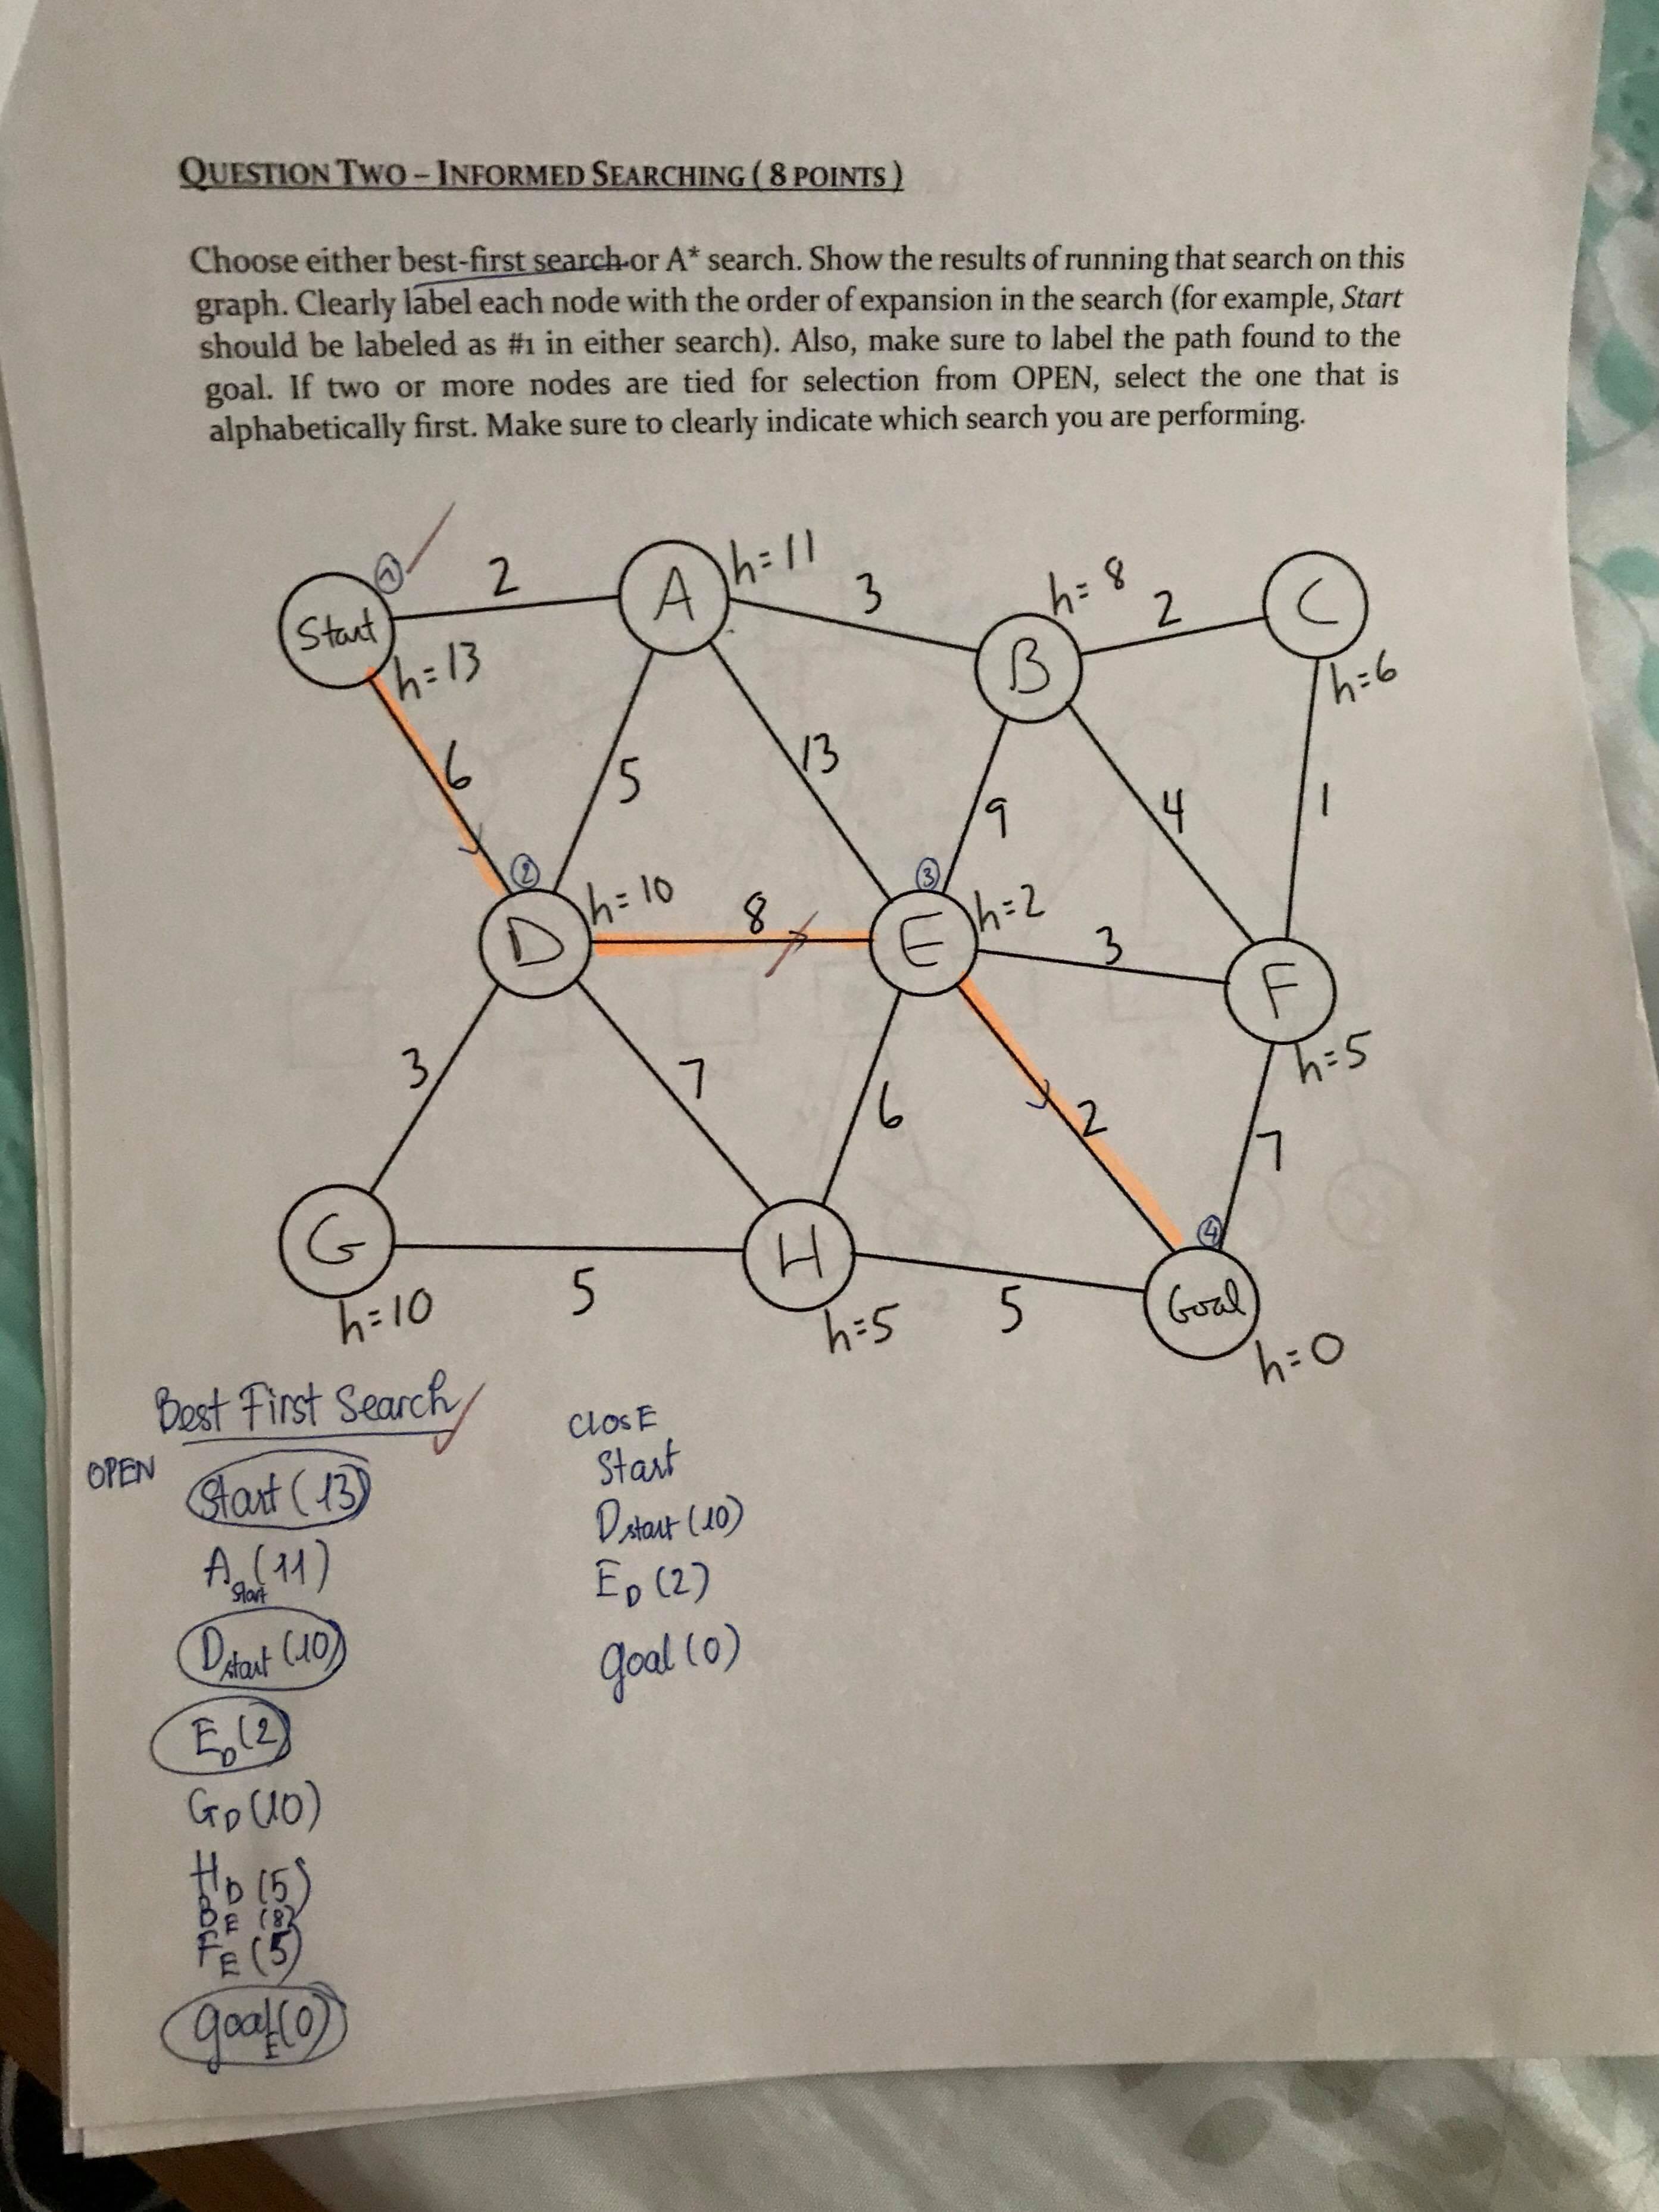 QUESTION TWO – INFORMED SEARCHING ( 8 POINTS )
Choose either best-first search or A* search. Show the results of running that search on this
graph. Clearly label each node with the order of expansion in the search (for example, Start
should be labeled as #1 in either search). Also, make sure to label the path found to the
goal. If two or more nodes are tied for selection from OPEN, select the one that is
alphabetically first. Make sure to clearly indicate which search you are performing.
Start
1
h=13
2
A
h=11
3
B
h=8
2
C
h=6
6
5
13
9
4
1
2
D
h=10
8
3
E
h=2
3
F
h=5
3
7
6
2
7
G
h=10
5
H
h=5
5
4
Goal
h=0
Best First Search
OPEN
Start (13)
A Start (11)
D start (10)
E D (2)
G D (10)
H D (5)
B E (8)
F E (5)
goal E (0)
ClosE
Start
D start (10)
E D (2)
goal (0)